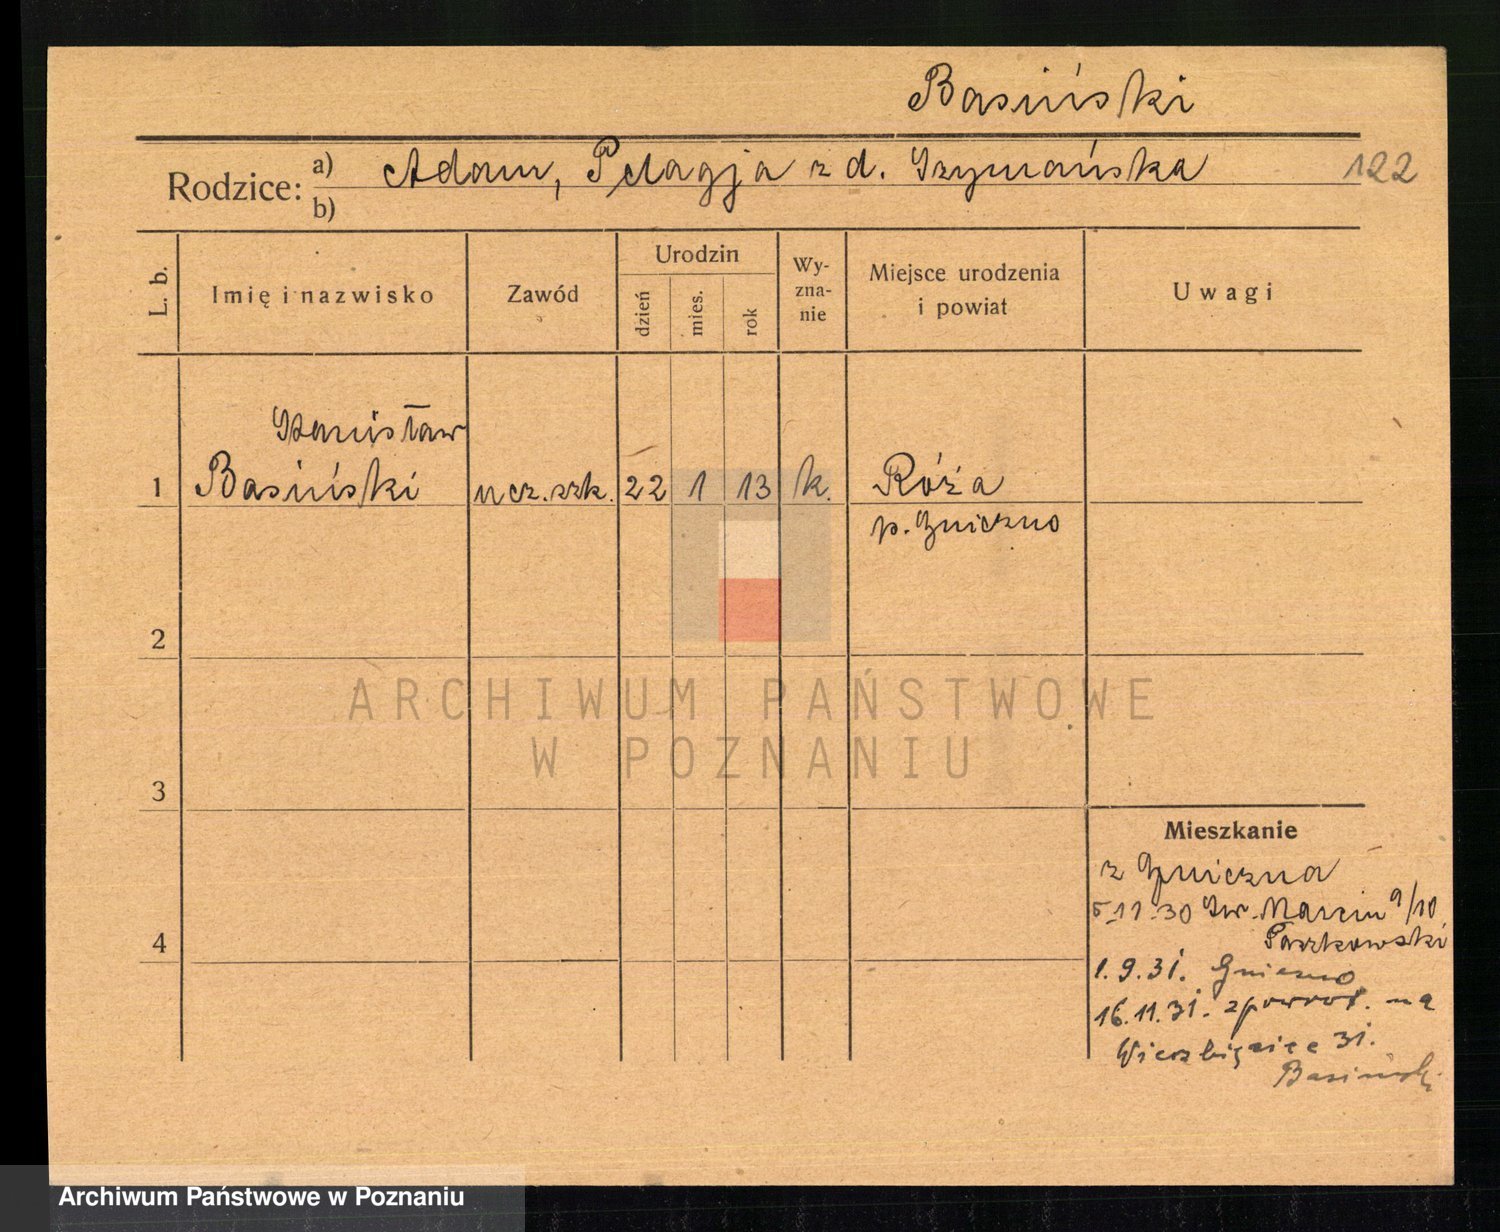 Basiński
Rodzice: a) Adam, Pelagja z d. Szymańska 122
b)
L. b. Imię i nazwisko Zawód Urodzin dzień mies. rok Wyznanie Miejsce urodzenia i powiat Uwagi
Stanisław
1 Basiński ucz. szk. 22 1 13 k. Róża
p. Gniezno
2
ARCHIWUM PAŃSTWOWE
W POZNANIU
3
Mieszkanie
z Gniezna
5.11.30 Św. Marcin 9/10
Paszkowski
4
1.9.31. Gniezno
16.11.31. zpowrot. na
Wierzbięcice 31.
Basiński
Archiwum Państwowe w Poznaniu